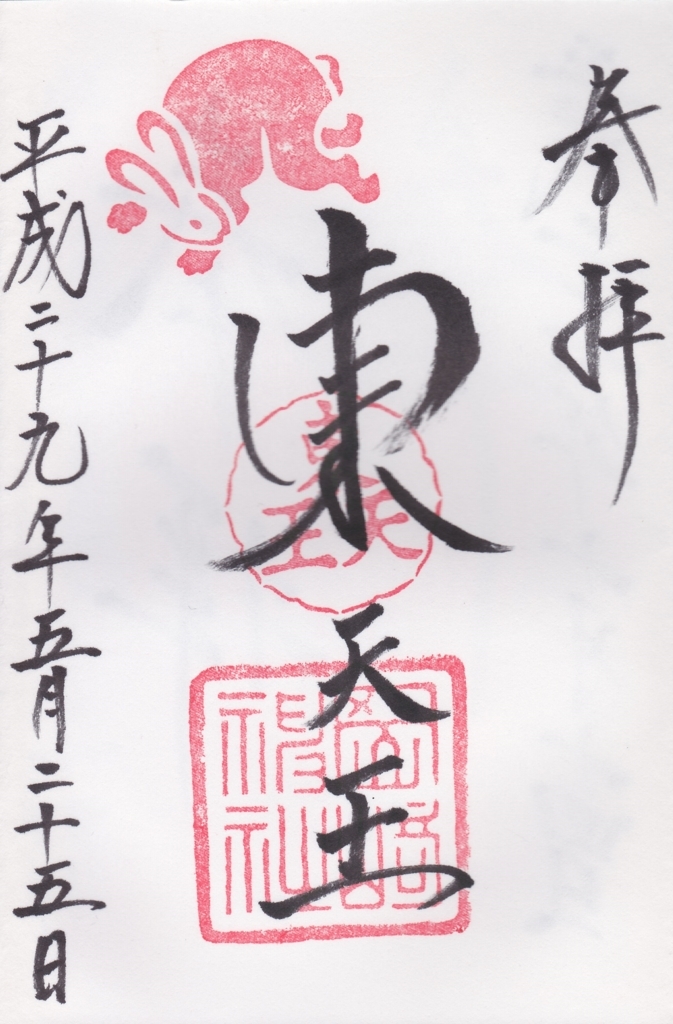 奉拝
東天王
岡崎神社
平成二十九年五月二十五日